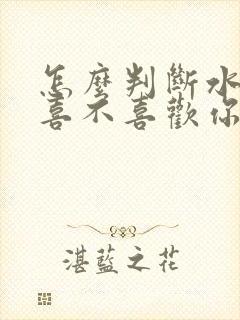 怎麼判斷水
喜不喜歡你
湛藍之花